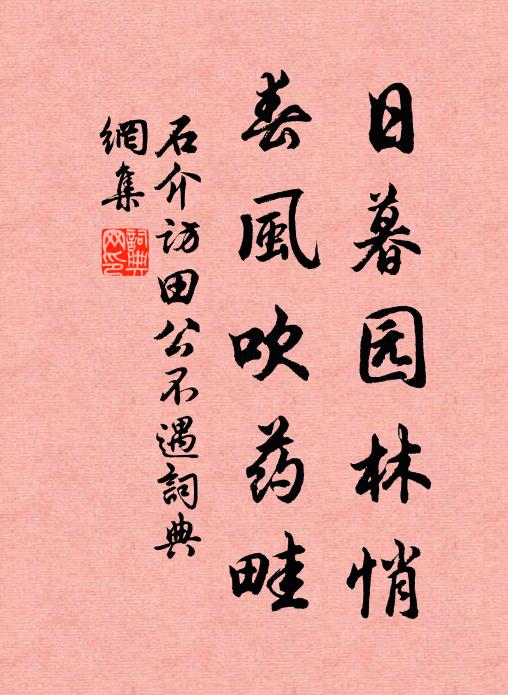 日暮园林悄
春風吹药畦
石介访田公不遇詞典
網集
詞典
网印